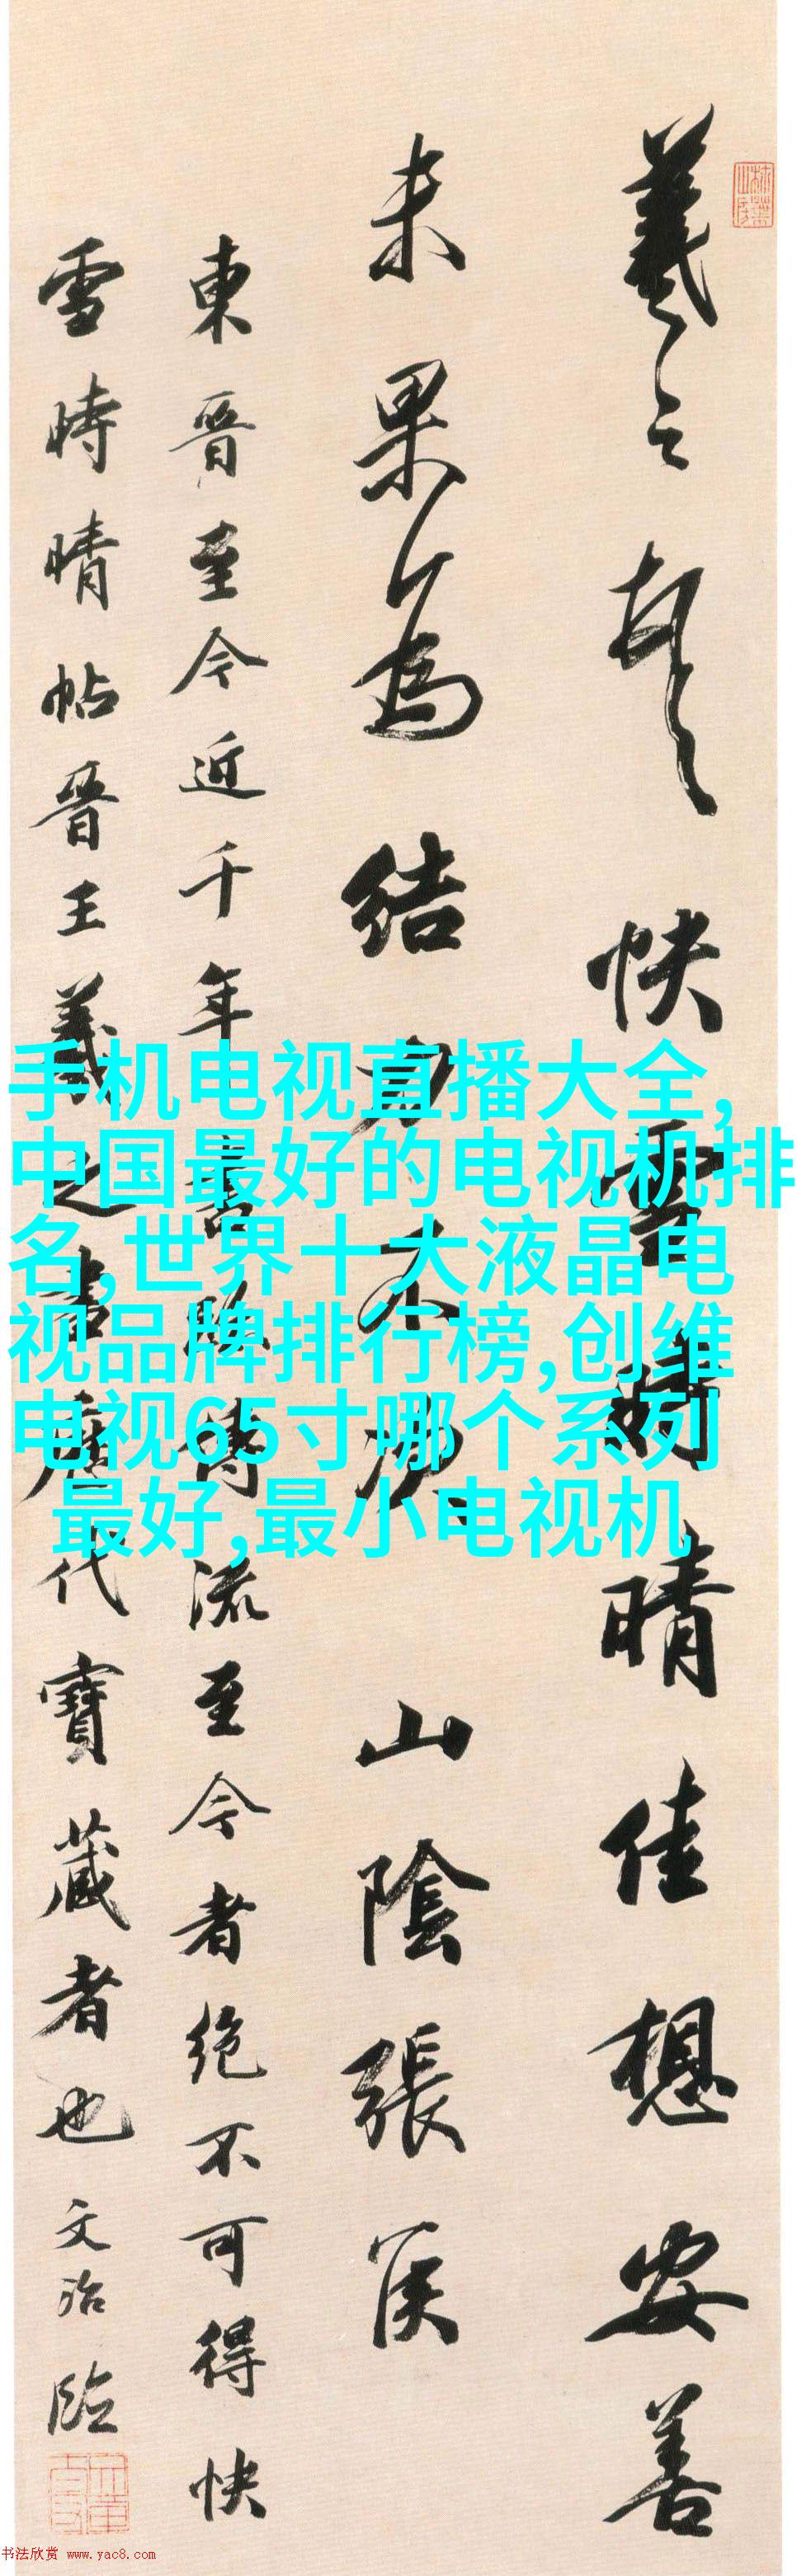 羲之頓首快雪時晴佳想安善
未果為結力不次 山陰張侯
東晉至今近千年書跡傳流至今者絕不可得快
雪時晴帖晉王羲之書歷代寶藏者也文治臨
手机电视直播大全,
中国最好的电视机排
名,世界十大液晶电
视品牌排行榜,创维
电视65寸哪个系列
最好,最小电视机
书法欣赏 www.yac8.com